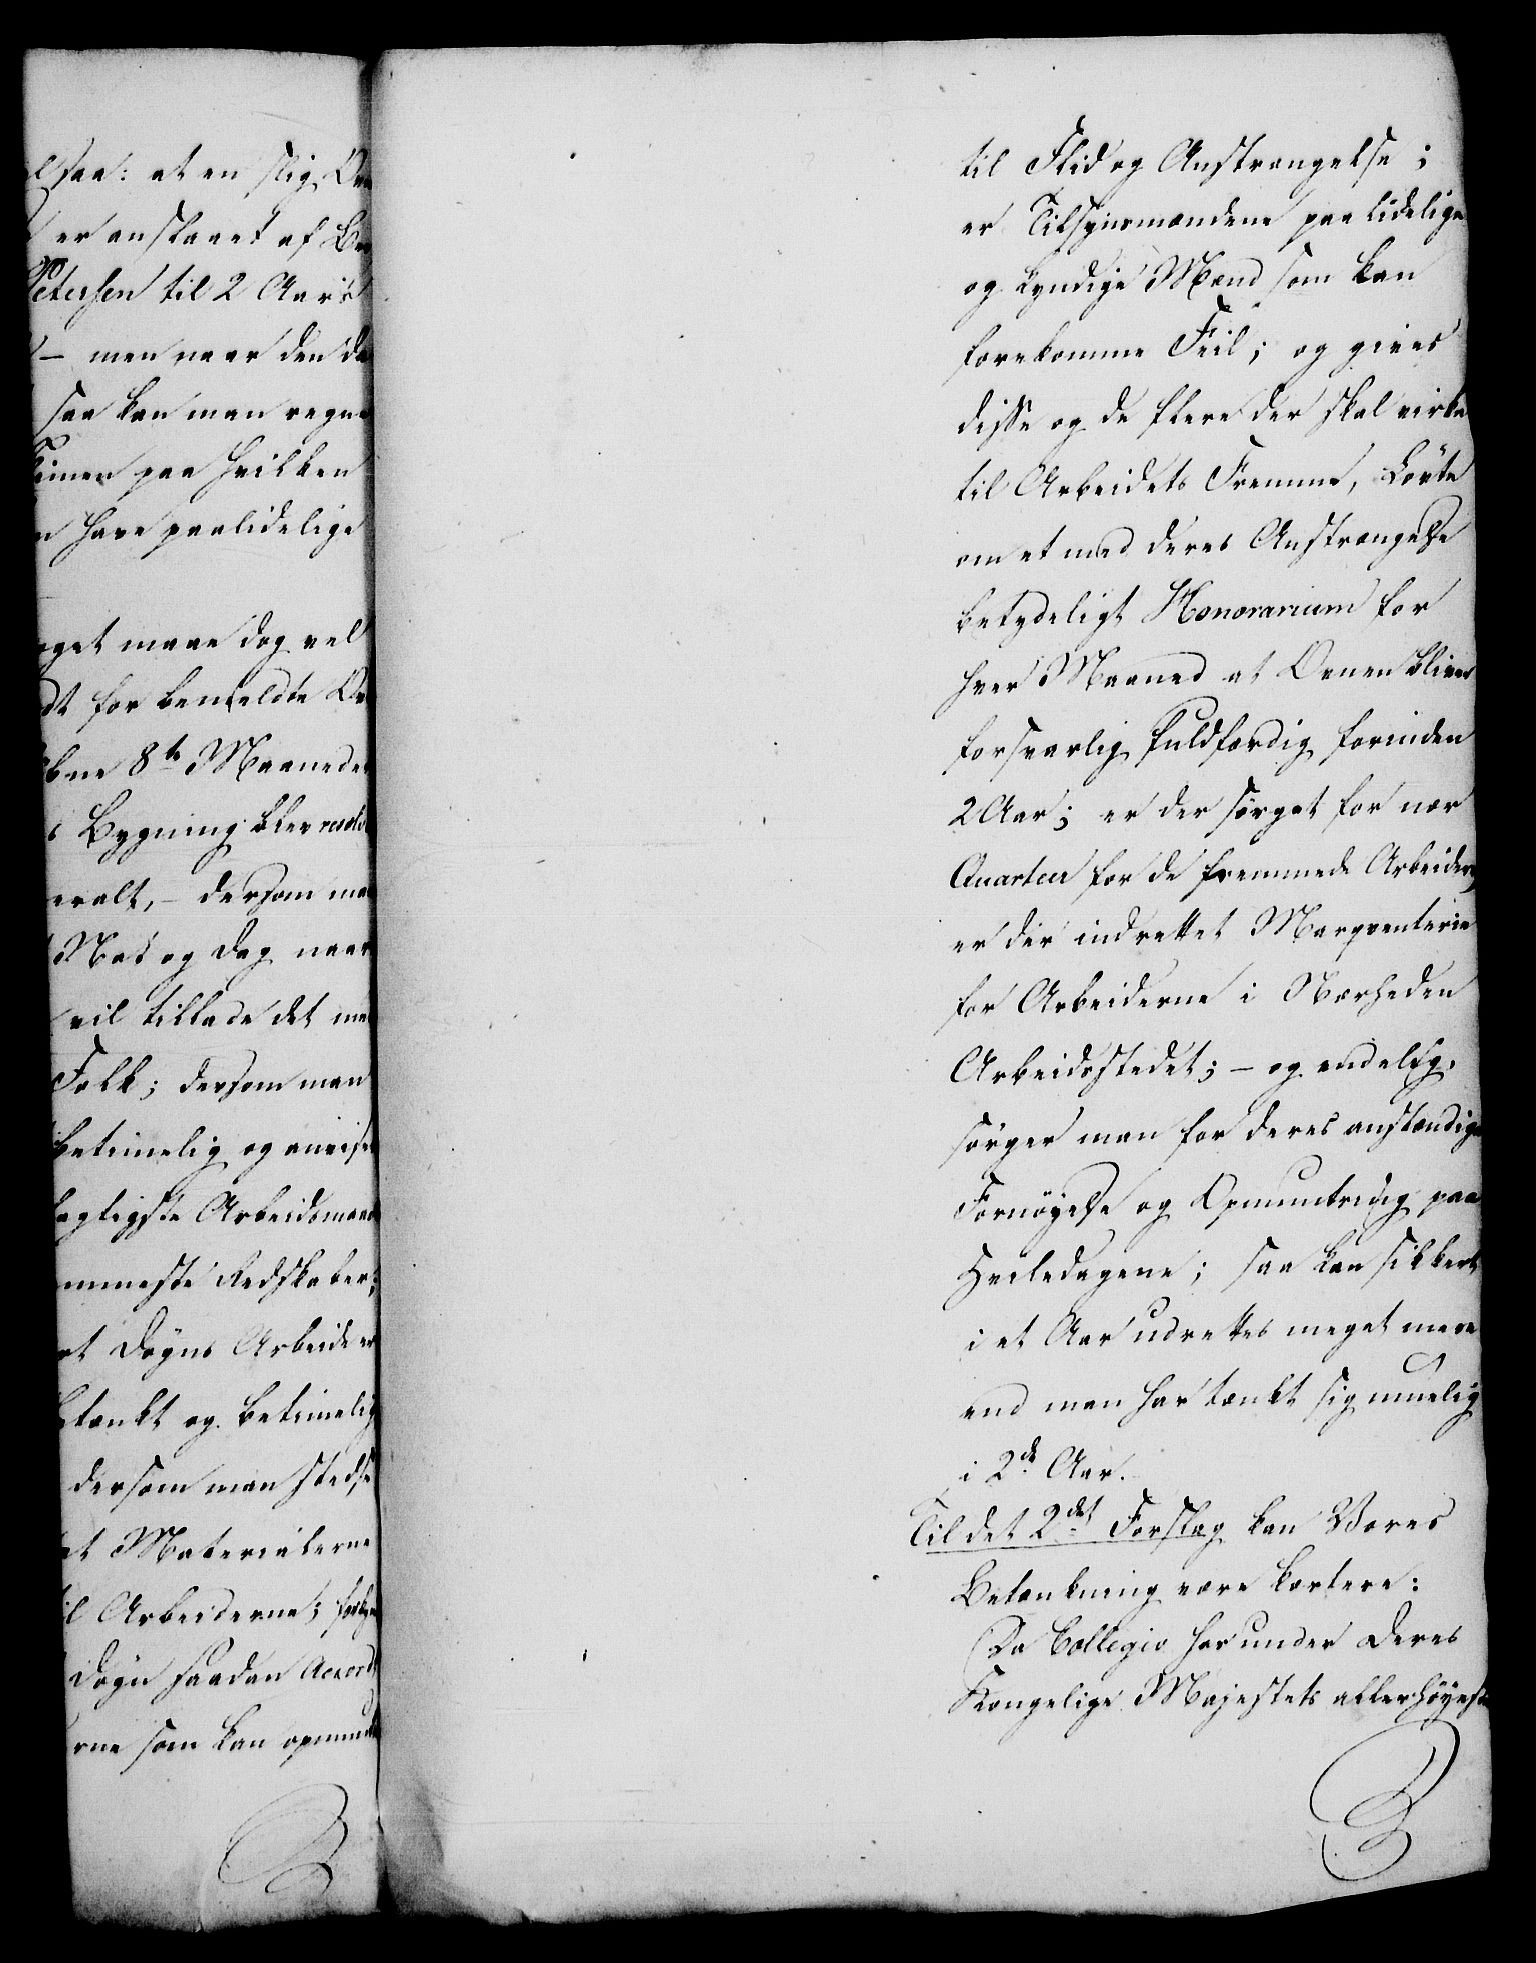 saa: at en slig Ov
er anslaaet af Be
Petersen til 2 Aar's
– men naar den da
saa kan man regne
paa hvilken
have paalidelige
get maae dog vel
dt for bemeldte Ov
8te Maaneder
Bygning blev
eralt, – dersom ma
Nat og Dag naar
vil tillade det me
Folk; dersom man
betimelig og anvise
agtigste Arbeidsmand
mmeste Redskaber;
et Døgns Arbeide er
tænkt og betimelig
dersom man stedse
at Materialerne
il Arbeiderne;
Døgn saadan Accord
rne som kan opmunt
til Flid og Anstrængelse;
er Tilsynsmændene paalidelige
og kyndige Mænd som kan
forekomme Feil; og gives
disse og de flere der skal virke
til Arbeidets Fremme, Løvte
om et med deres Anstrængelse
betydeligt Honorarium for
hver Maaned at Ovnen bliver
forsvarlig fuldfærdig forinden
2 Aar; er der sørget for nær
Quarteer for de fremmede Arbeidere,
er der indrettet Marqventerie
for Arbeiderne i Nærheden
Arbeidsstedet; – og endelig,
sørger man for deres anstændige
Fornøyelse og Opmuntring paa
Hviledagene; saa kan sikkert
i et Aar udrettes meget mere
end man har tænkt sig muelig
i 2de Aar.
Til det 2det Forslag kan Vores
Betænkning være kortere:
Da Collegio har under Deres
Kongelige Majestets allerhøyeste